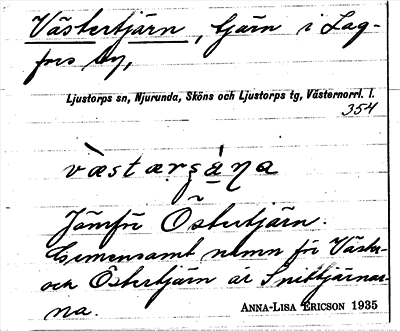 Västertjärn, tjärn i Lag-
fors by,
Ljustorps sn, Njurunda, Sköns och Ljustorps tg, Västernorrl. l.
354
Jämför Östertjärn.
Gemensamt namn för Väster-
och Östertjärn är Snittjärnar-
na.
ANNA-LISA ERICSON 1935